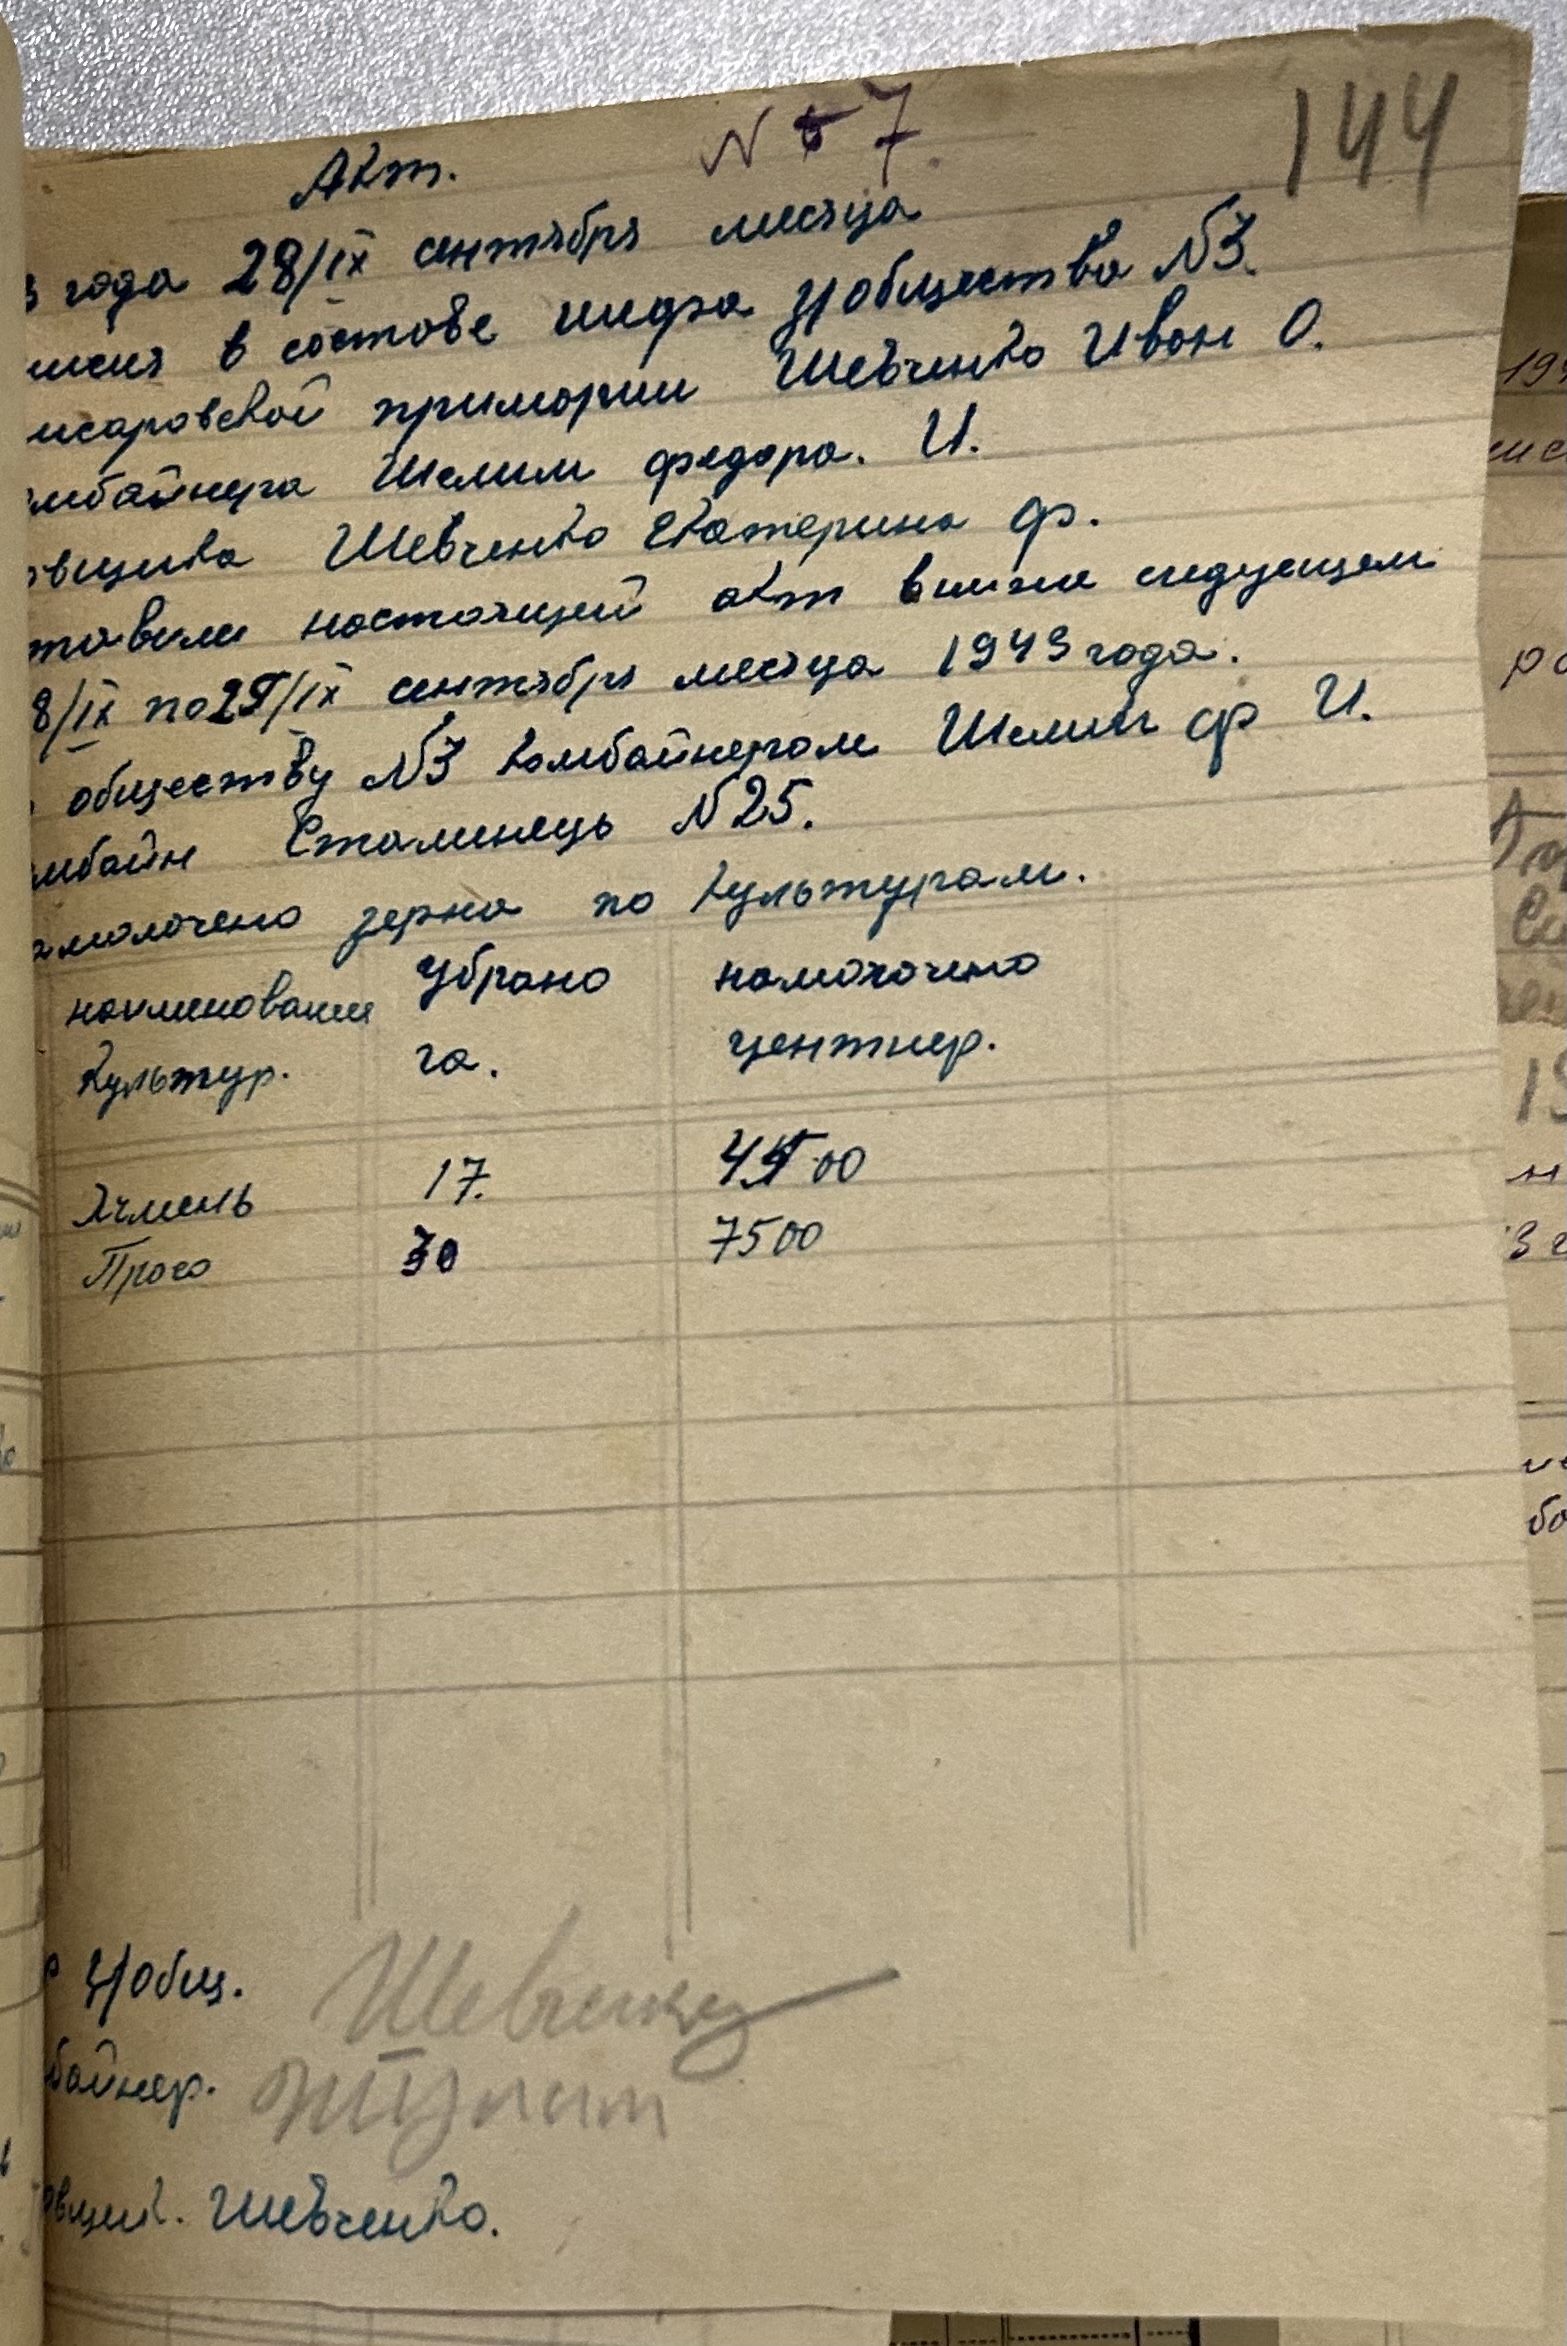 144
N 7.
Акт.
3 года 28/IX сентября месяца
мисия в состове шефа з/общества N3.
исаровской примории Шевченко Иван О.
мбайнера Шелим федора. И.
овщика Шевченко Екатерина ф.
тавили настоящий акт в следующем
8/IX по 29/IX сентября месяца 1943 года.
обществу N3 комбайнером Шелим ф И.
мбайн Сталинець N25.
амолочено зерна по культурам.
наименовании убрано намолочено
культур. га. центнер.
Ячмень 17. 00
Просо 30 7500
з/общ. Шевченко
байнер.
овщик. Шевченко.